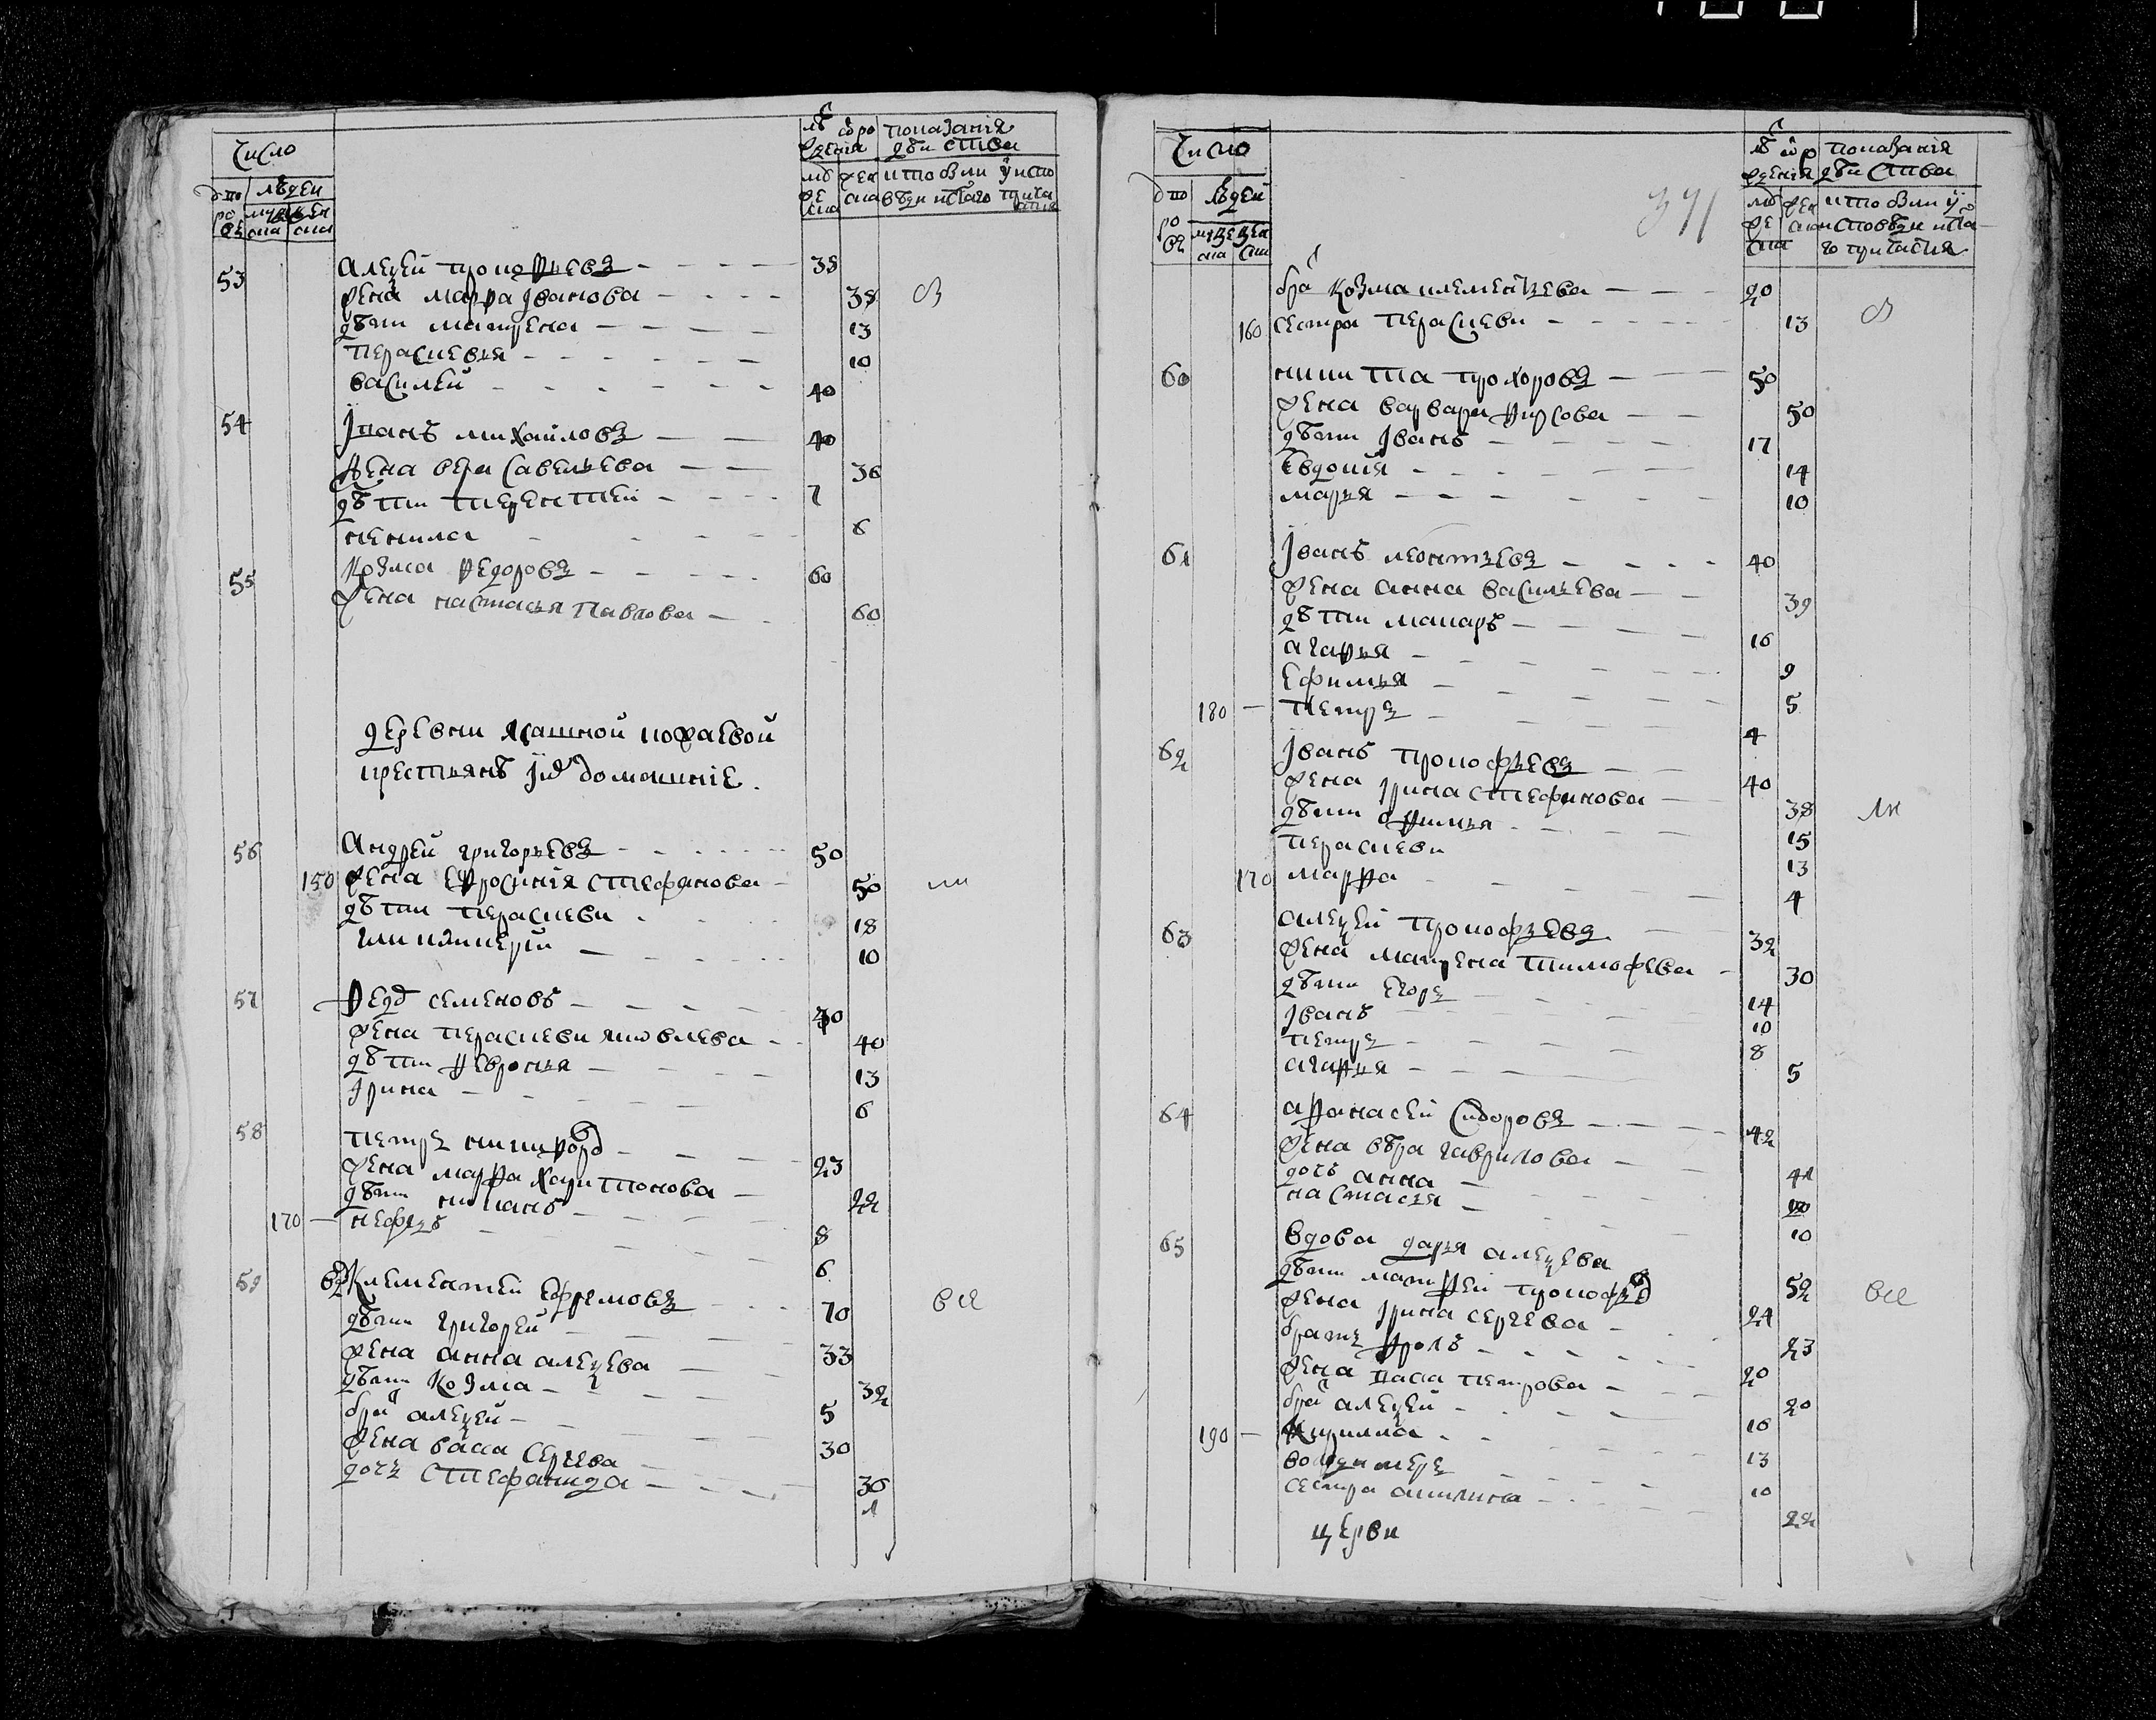 число
лѣ ѿ ро
жденія
показанія
дѣиства
дво
ро
въ
людеи
муж
ска
жен
ска
му
же
ска
жен
ска
кто былъ ў испо
вѣди и с҃таго прича
стія
53 Алеѯей прокофьевъ 38
жена марфа Jванова 38
дѣти матрена 13
Парасковья 10
василей 40
54 Jванъ михаиловъ 40
жена вера савельева 36
дѣти терентеи 7
ненила 6
55 Козма федоровъ 60
жена настасья Павлова 60
деревни Ясашной кораевой
крестьянѣ и домашніе.
56 Андрей григорьевъ 50
150 жена Ефросинія Стефанова 50
дѣти парасковия 18
гликлирия 10
57 Фед семеновъ 40
жена парасковия яковлева 40
дѣти февронья 13
Ирина 6
58 петръ никифоро 23
жена марфа харитонова 22
дѣти никанъ 8
170 нефедъ 6
59 вд Климентеи ефремовъ 70 все
дѣти григорей 33
жена анна алеѯева 32
дѣти Козма 5
бра алеѯей 30
жена васса сергеева 30
дочь Стефанида 1
число
391
лѣ ѿ ро
жденія
показанія
дѣиства
дво
ро
въ
людей
муже
ска
жен
ска
му
же
ска
жен
ска
кто былъ ў
исповѣди и с҃та
го причастія
бра Козма клементьева 20
160 сестра парасковия 13
60 никита прохоровъ 50
жена варвара фирсова 50
дѣти Jванъ 17
Евдокія 14
марья 10
61 Jванъ леонтьевъ 40
жена анна васильева 39
дѣти макаръ 16
агафья 9
Ефимья 5
180 Петръ 4
62 Jванъ прокофьевъ 40
жена Ирина Стефанова 38
дѣти афимья 15
парасковия 13
170 марфа 4
63 алеѯей прокофьевъ 32
жена матрена тимофева 30
дѣти егоръ 14
Jванъ 10
петръ 8
агафья 5
64 афанасей Сидоровъ 42
жена вѣра гаврилова 41
дочь анна
настасья 10
65 вдова дарья алеѯева 52 все
дѣти матфей прокофье 24
жена Ирина сергеева 23
братъ фролъ 20
жена петрова 20
бра алеѯей 16
190 Кирилла 13
володимеръ 10
сестра акилина 22
церкви